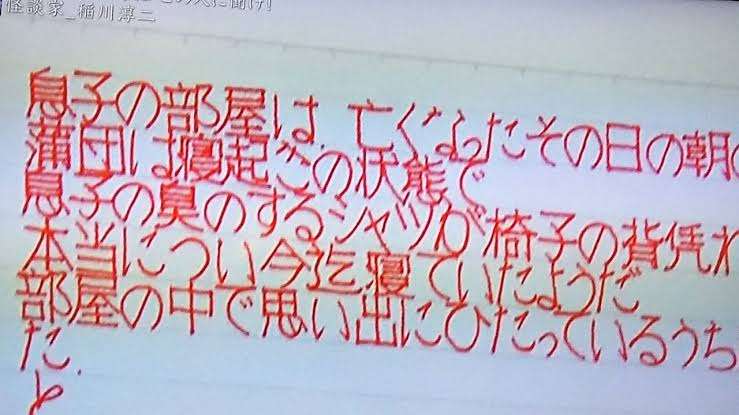 この人に聞け!
怪談家_稲川淳二
息子の部屋は、亡くなったその日の朝の
蒲団は寝起きの状態で
息子の臭のするシャツが椅子の背凭れ
本当につい今迄寝ていたようだ
部屋の中で思い出にひたっているうち
た.
と